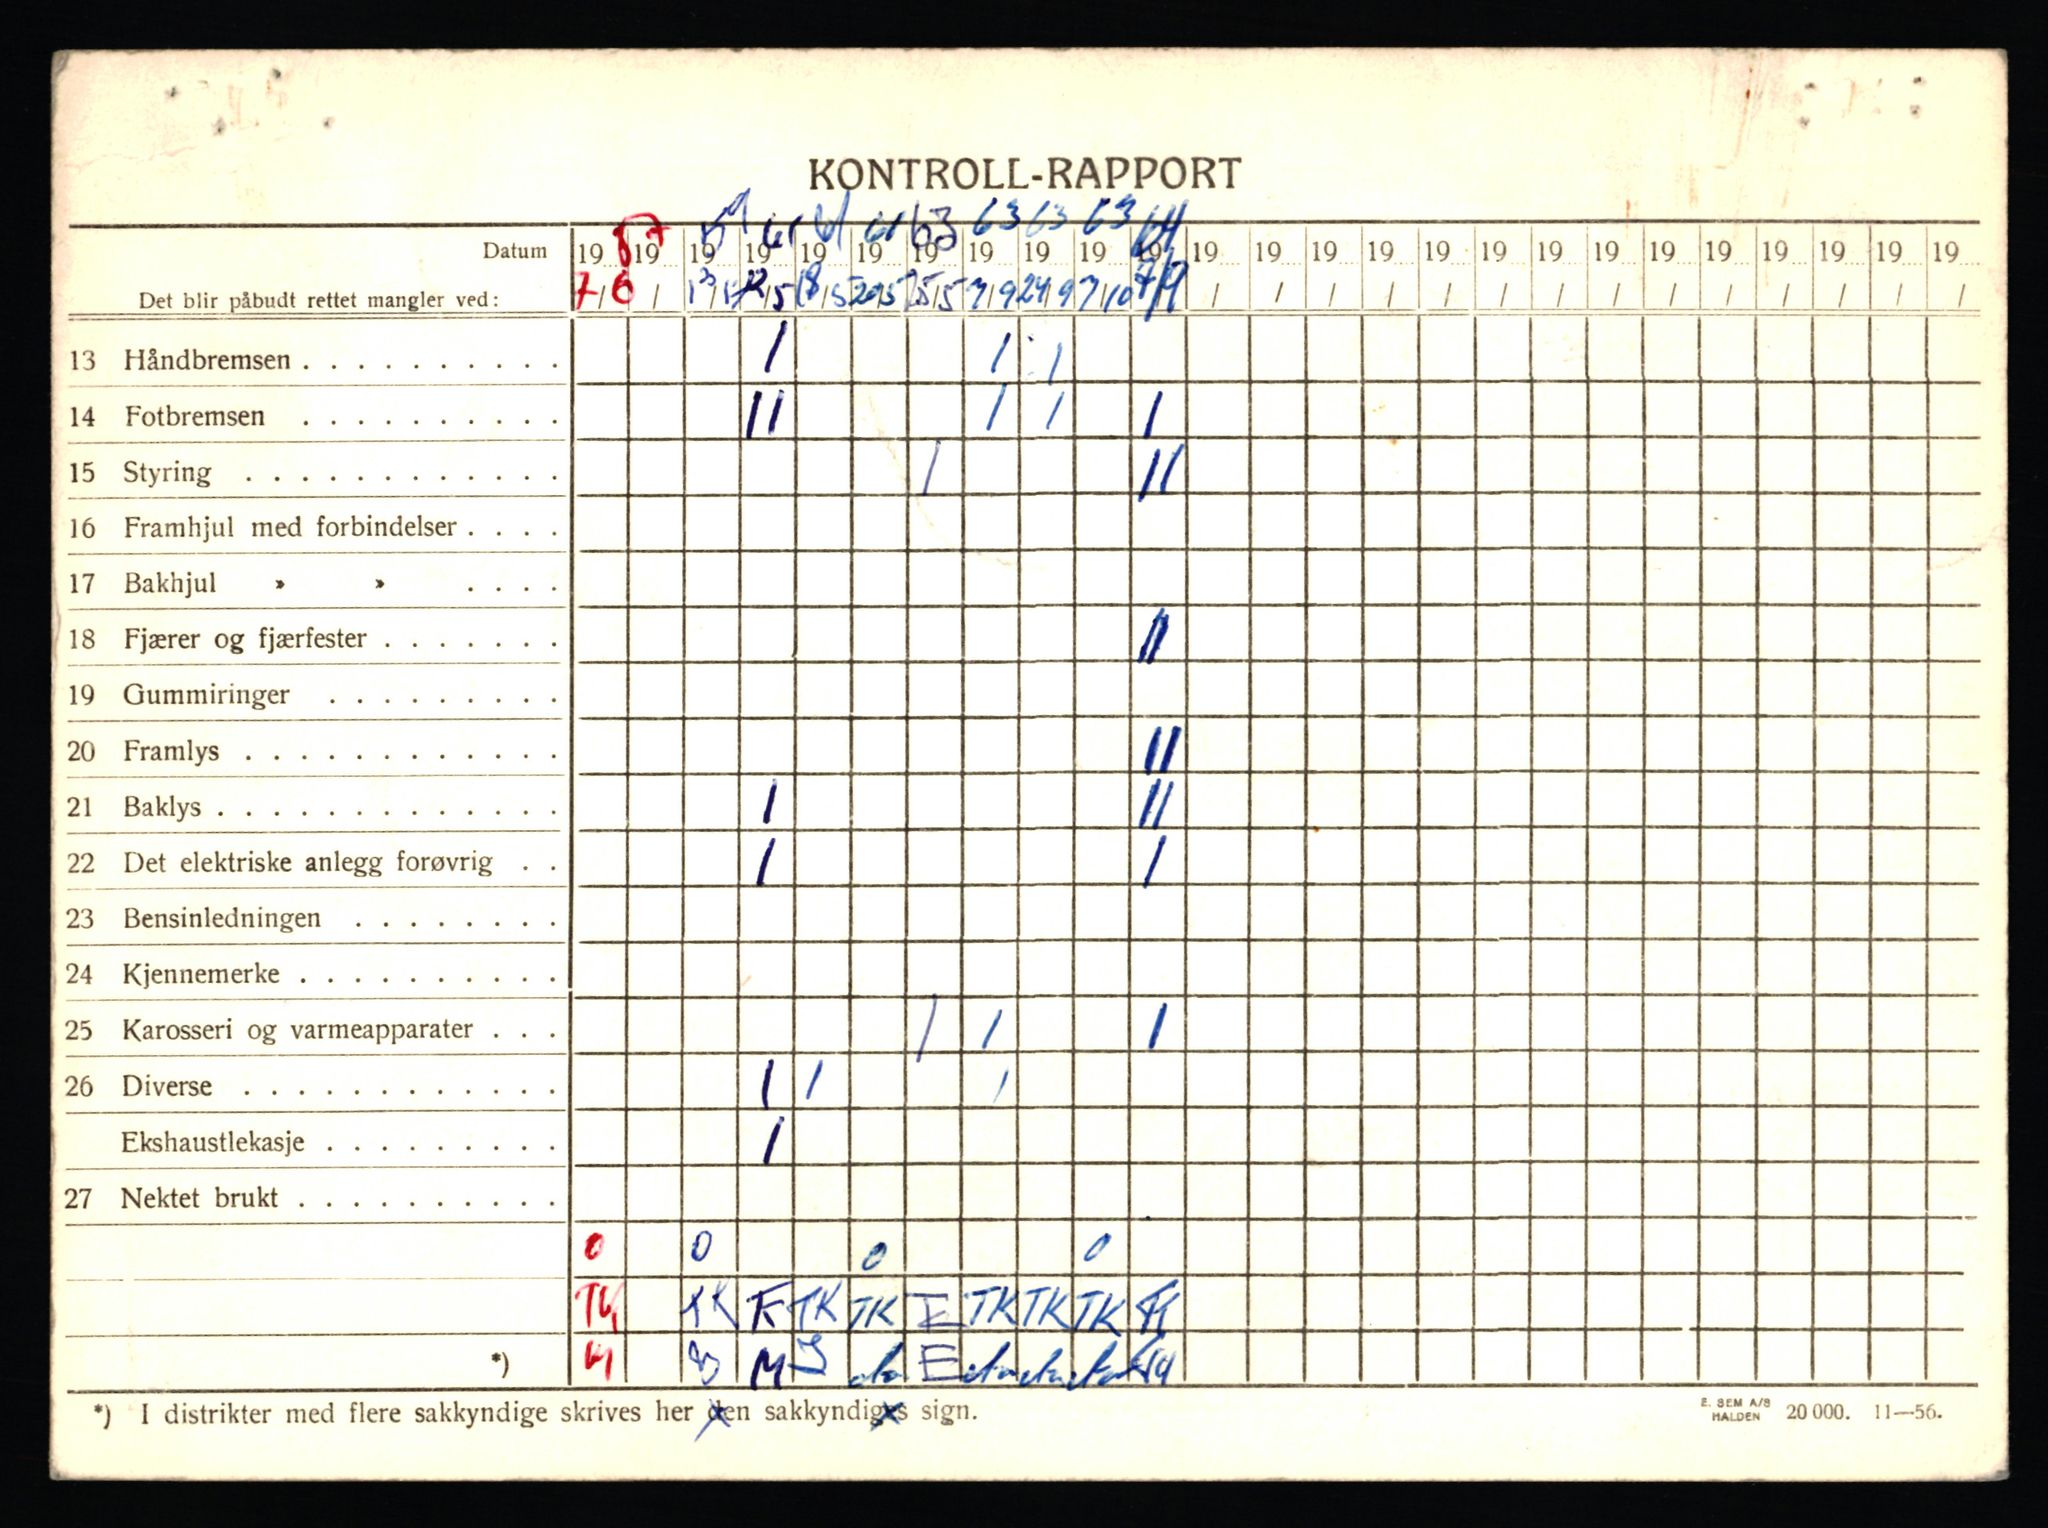 KONTROLL-RAPPORT
57 59 61 61 61 63 63 63 63 64
Datum 19 19 19 19 19 19 19 19 19 19 19 19 19 19 19 19 19 19 19 19 19 19 19 19 19
Det blir påbudt rettet mangler ved: 7/6 / 12/5 18/5 20/5 25/5 7/9 24/9 7/10 / / / / / / / / / / / / / /
13 Håndbremsen . . . . . . . . . . / / /
14 Fotbremsen . . . . . . . . . . // / / /
15 Styring . . . . . . . . . . . . / //
16 Framhjul med forbindelser . . . .
17 Bakhjul » » . . . .
18 Fjærer og fjærfester . . . . . . . //
19 Gummiringer . . . . . . . . .
20 Framlys . . . . . . . . . . . . //
21 Baklys . . . . . . . . . . . . . / //
22 Det elektriske anlegg forøvrig . . / /
23 Bensinledningen . . . . . . . . .
24 Kjennemerke . . . . . . . . . .
25 Karosseri og varmeapparater . . . / / /
26 Diverse . . . . . . . . . . . . / / /
Ekshaustlekasje . . . . . . . . . /
27 Nektet brukt . . . . . . . . . .
0 0 0 0
TK TK TK TK TK TK TK
*) M E
*) I distrikter med flere sakkyndige skrives her den sakkyndiges sign.
E. SEM A/S HALDEN 20 000. 11—56.